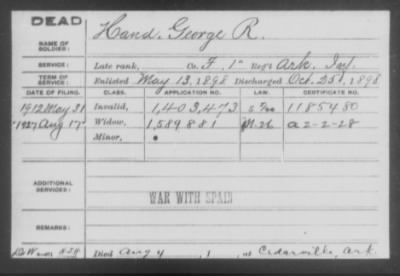 DEAD
NAME OF SOLDIER: Hand, George R.
SERVICE: Late rank, Co. F, 1" Reg't Ark. Inf.
TERM OF SERVICE: Enlisted May 13, 1898 Discharged Oct. 25, 1898
DATE OF FILING. CLASS. APPLICATION NO. LAW. CERTIFICATE NO.
1912 May 31 Invalid, 1,403,473 1185480
1927 Aug 17 Widow, 1,589,881 A 2-2-28
Minor,
ADDITIONAL SERVICES:
WAR WITH SPAIN
REMARKS:
Died Aug 4, at Cedarville, Ark.